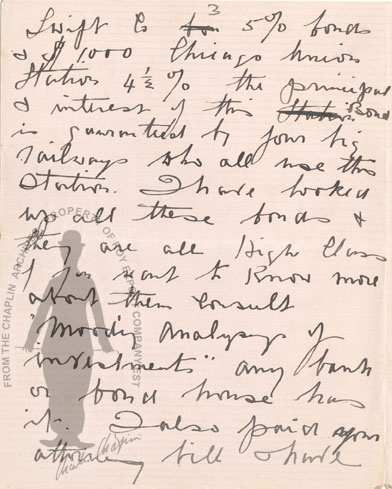 3
Swift Co ten 5% bonds
& $1,000 Chicago Union
Station 4½% the principal
& interest of this Station Bond
is guaranteed by four big
railways who all use this
Station. I have looked
up all these bonds &
they are all High Class
if you want to know more
about them consult
"Moodys Analysys of
investments" any bank
or bond house has
it. I also paid your
attorney bill I have
FROM THE CHAPLIN ARCHIVES PROPERTY OF ROY EXPORT COMPANY EST
Charles Chaplin